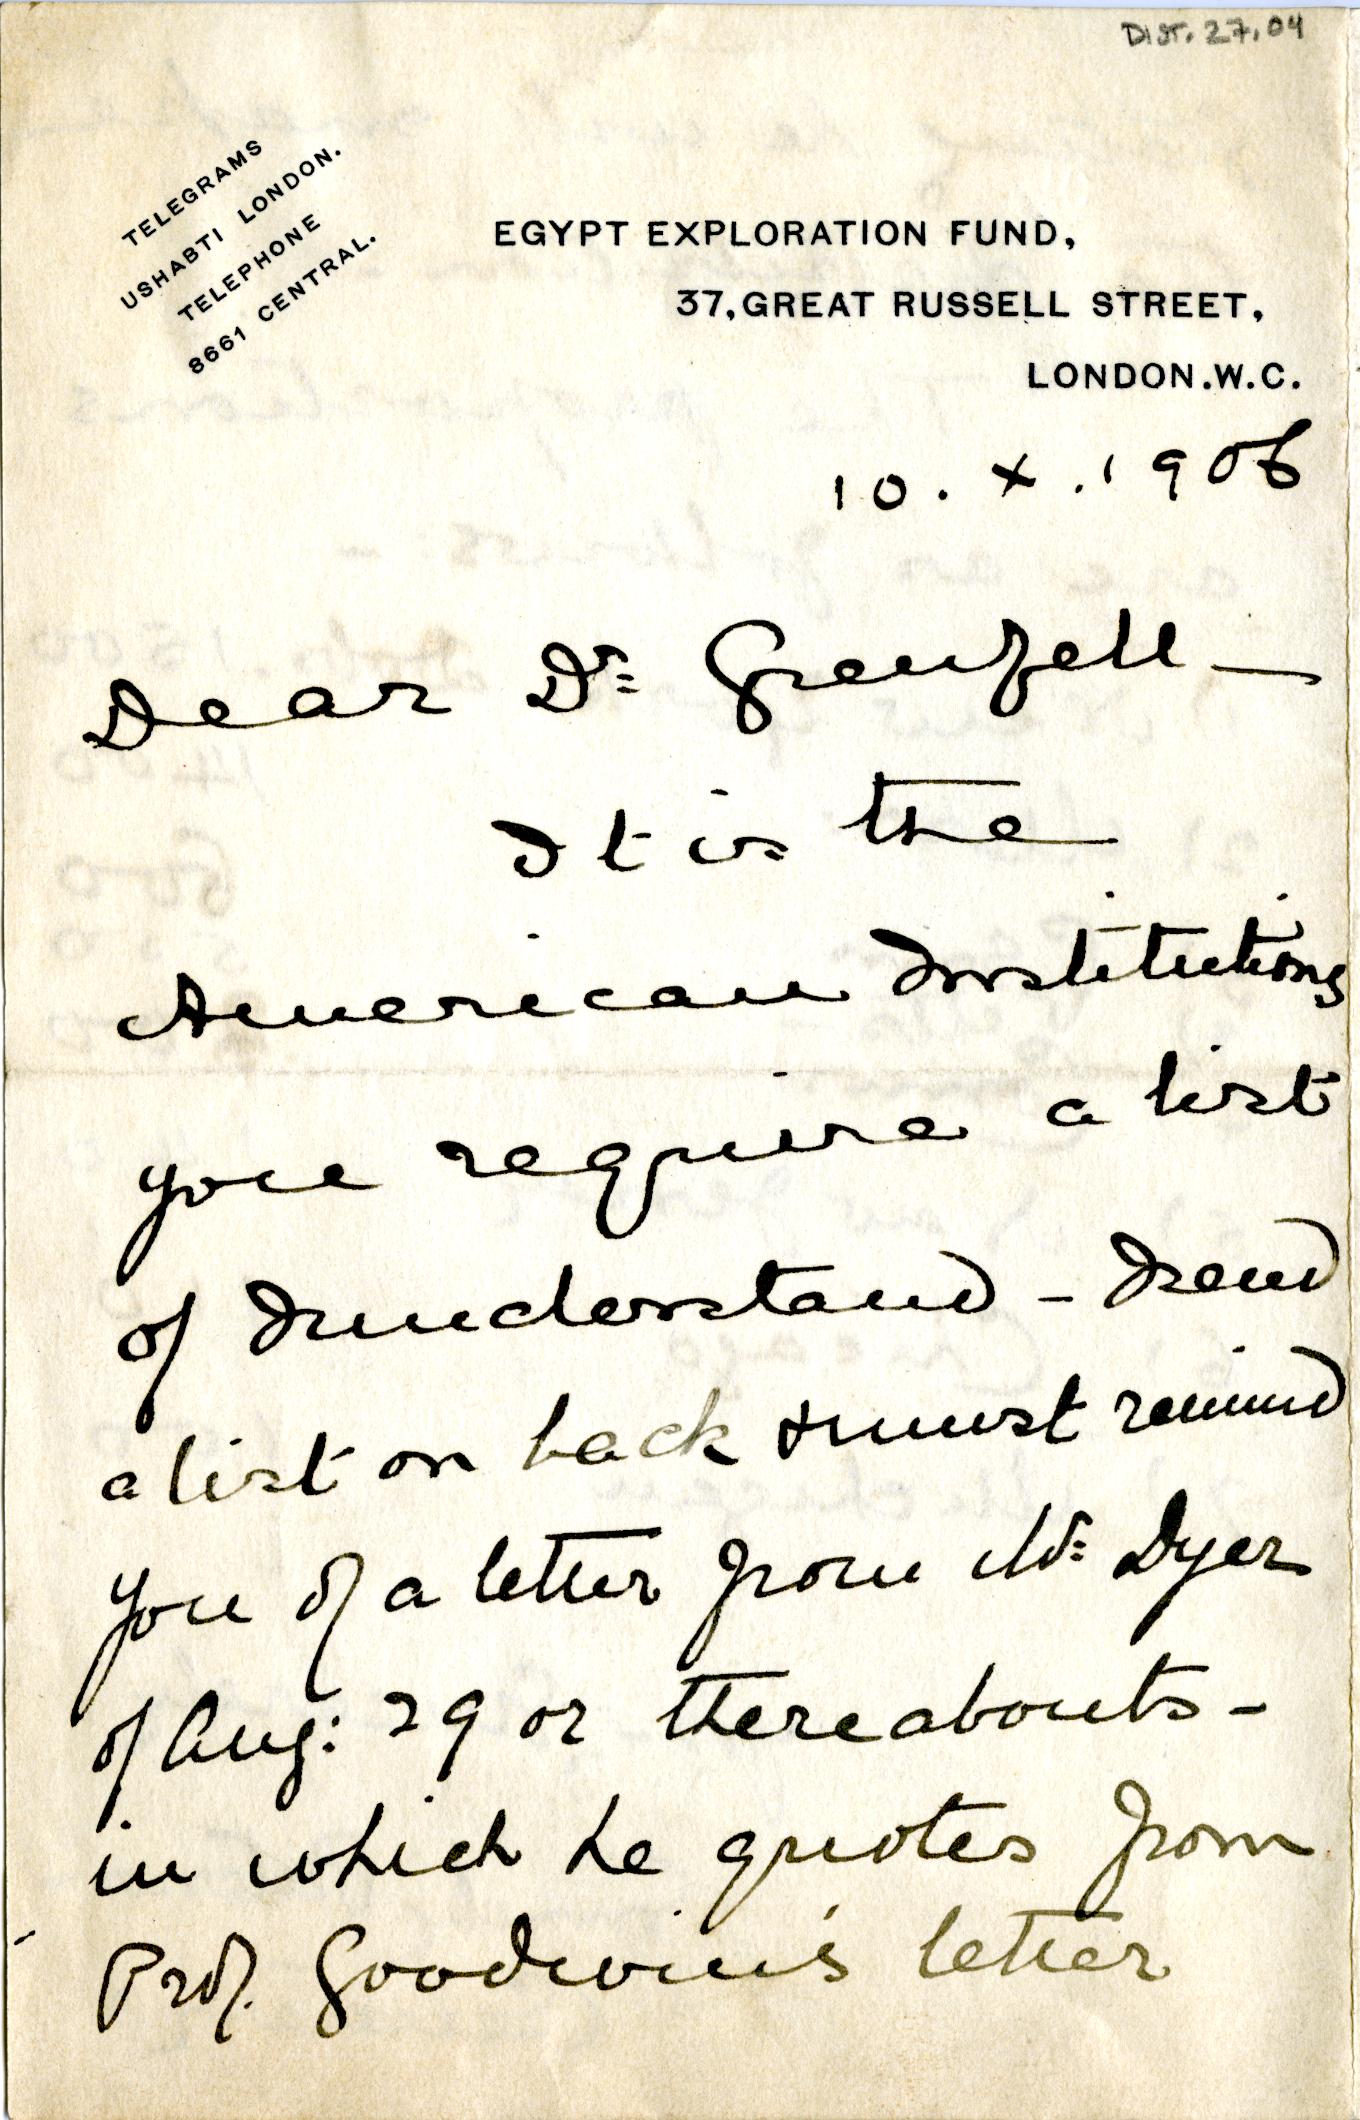 DIST. 27.04
TELEGRAMS
USHABTI LONDON.
TELEPHONE
8661 CENTRAL.
EGYPT EXPLORATION FUND,
37, GREAT RUSSELL STREET,
LONDON. W.C.
10. X. 1906
Dear Dr: Grenfell —
It is the
American Institutions
you require a list
of I understand - I send
a list on back & must remind
you of a letter from Mr: Dyer
of Aug: 29 or thereabouts -
in which he quotes from
Prof. Goodwin's letter